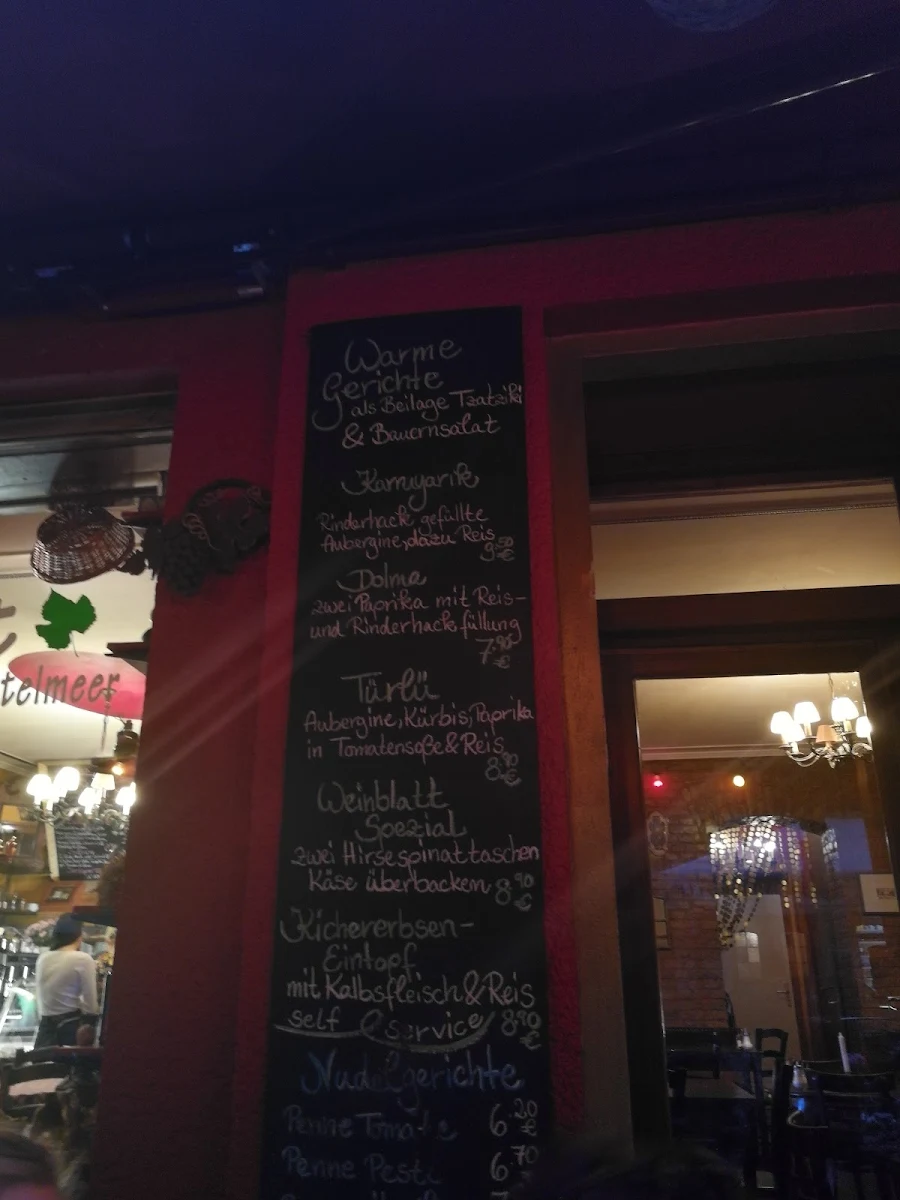 Warme
Gerichte
als Beilage Tzatziki
& Bauernsalat
Karnıyarik
Rinderhack gefüllte
Aubergine, dazu Reis
9.50 €
Dolma
zwei Paprika mit Reis-
und Rinderhackfüllung
7.90 €
Türlü
Aubergine, Kürbis, Paprika
in Tomatensoße & Reis
8.90 €
Weinblatt
Spezial
zwei Hirsespinattaschen
Käse überbacken 8.90 €
Kichererbsen-
Eintopf
mit Kalbsfleisch & Reis
self service 8.90 €
Nudelgerichte
Penne Tomate 6.20 €
Penne Pesto 6.70
telmeer